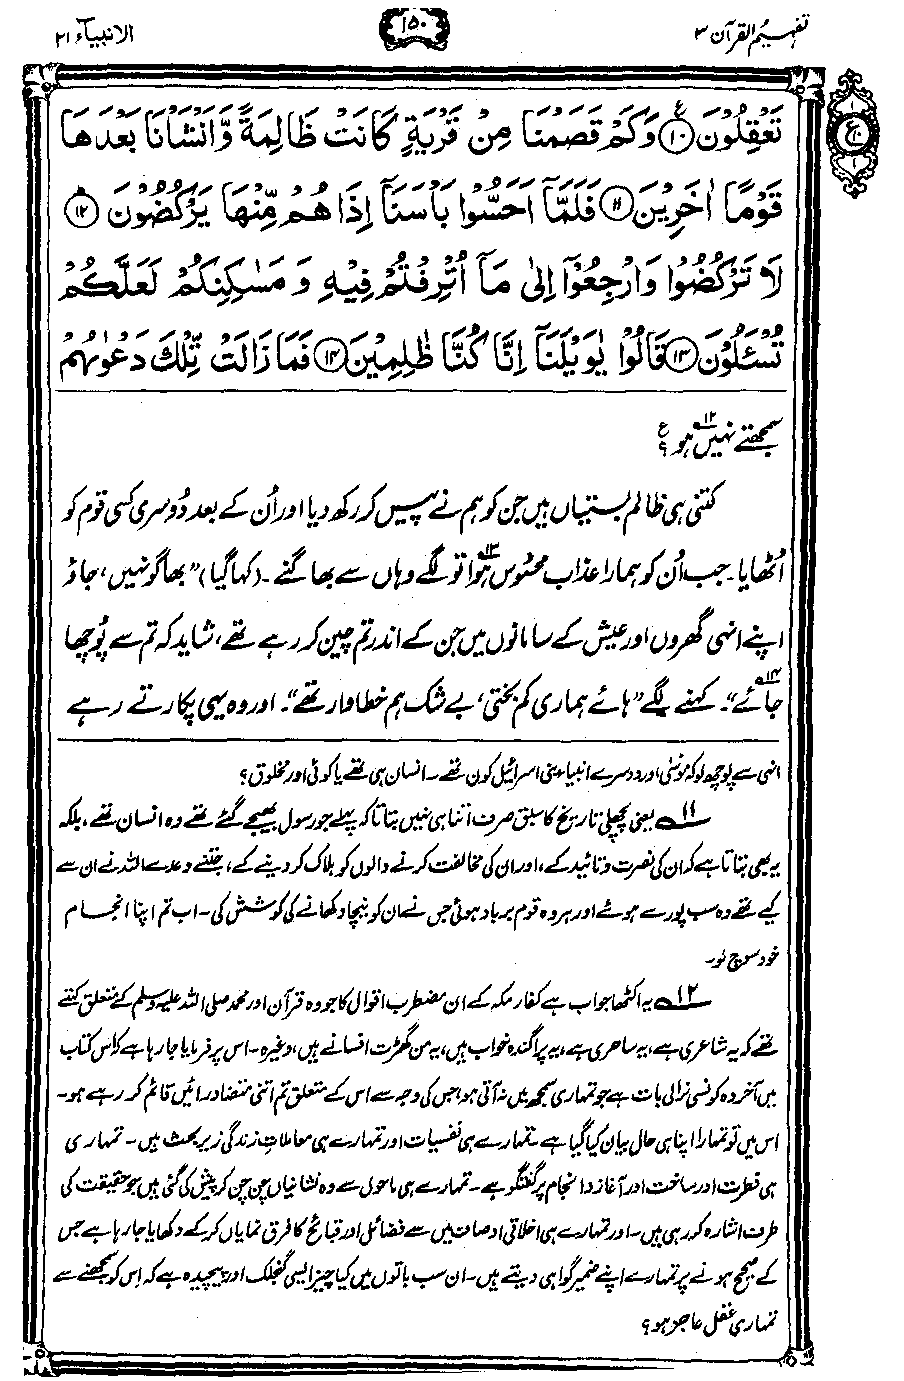 تفہیم القرآن ۳
۱۵۰
الانبیآء ۲۱
تَعْقِلُوْنَ ﴿۱۰﴾ وَكَمْ قَصَمْنَا مِنْ قَرْيَةٍ كَانَتْ ظَالِمَةً وَّاَنْشَاْنَا بَعْدَهَا
قَوْمًا اٰخَرِيْنَ ﴿۱۱﴾ فَلَمَّاۤ اَحَسُّوْا بَاْسَنَاۤ اِذَا هُمْ مِّنْهَا يَرْكُضُوْنَ ﴿۱۲﴾
لَا تَرْكُضُوْا وَارْجِعُوْۤا اِلٰى مَاۤ اُتْرِفْتُمْ فِيْهِ وَ مَسٰكِنِكُمْ لَعَلَّكُمْ
تُسْـَٔلُوْنَ ﴿۱۳﴾ قَالُوْا يٰوَيْلَنَاۤ اِنَّا كُنَّا ظٰلِمِيْنَ ﴿۱۴﴾ فَمَا زَالَتْ تِّلْكَ دَعْوٰىهُمْ
سمجھتے نہیں ہو؟ ۱۲ ع
کتنی ہی ظالم بستیاں ہیں جن کو ہم نے پیس کر رکھ دیا اور اُن کے بعد دُوسری کسی قوم کو
اُٹھایا۔ جب اُن کو ہمارا عذاب محسُوس ہُوا ۱۳ تو لگے وہاں سے بھاگنے۔ (کہا گیا) ”بھاگو نہیں، جاؤ
اپنے انہی گھروں اور عیش کے سامانوں میں جن کے اندر تم چین کر رہے تھے، شاید کہ تم سے پُوچھا
جائے ۱۴“۔ کہنے لگے ”ہائے ہماری کم بختی، بے شک ہم خطاوار تھے“۔ اور وہ یہی پکارتے رہے
انہی سے پوچھ لو کہ موسیٰ اور دوسرے انبیاء بنی اسرائیل کون تھے۔ انسان ہی تھے یا کوئی اور مخلوق؟
۱۱ یعنی پچھلی تاریخ کا سبق صرف اتنا ہی نہیں بتاتا کہ پہلے جو رسول بھیجے گئے تھے وہ انسان تھے، بلکہ
یہ بھی بتاتا ہے کہ ان کی نصرت و تائید کے، اور ان کی مخالفت کرنے والوں کو ہلاک کر دینے کے، جتنے وعدے اللہ نے ان سے
کیے تھے وہ سب پورے ہوئے اور ہر وہ قوم برباد ہوئی جس نے ان کو نیچا دکھانے کی کوشش کی۔ اب تم اپنا انجام
خود سوچ لو۔
۱۲ یہ اکٹھا جواب ہے کفار مکہ کے ان مضطرب اقوال کا جو وہ قرآن اور محمد صلی اللہ علیہ وسلم کے متعلق کہتے
تھے کہ یہ شاعری ہے، یہ ساحری ہے، یہ پراگندہ خواب ہیں، یہ من گھڑت افسانے ہیں، وغیرہ۔ اس پر فرمایا جا رہا ہے کہ اس کتاب
میں آخر وہ کونسی نرالی بات ہے جو تمہاری سمجھ میں نہ آتی ہو، جس کی وجہ سے اس کے متعلق تم اتنی متضاد رائیں قائم کر رہے ہو۔
اس میں تو تمہارا اپنا ہی حال بیان کیا گیا ہے۔ تمہارے ہی نفسیات اور تمہارے ہی معاملاتِ زندگی زیر بحث ہیں۔ تمہاری
ہی فطرت اور ساخت اور آغاز و انجام پر گفتگو ہے۔ تمہارے ہی ماحول سے وہ نشانیاں چن چن کر پیش کی گئی ہیں جو حقیقت کی
طرف اشارہ کر رہی ہیں۔ اور تمہارے ہی اخلاقی اوصاف میں سے فضائل اور قبائح کا فرق نمایاں کر کے دکھایا جا رہا ہے جس
کے صحیح ہونے پر تمہارے اپنے ضمیر گواہی دیتے ہیں۔ ان سب باتوں میں کیا چیز ایسی گنجلک اور پیچیدہ ہے کہ اس کو سمجھنے سے
تمہاری عقل عاجز ہو؟